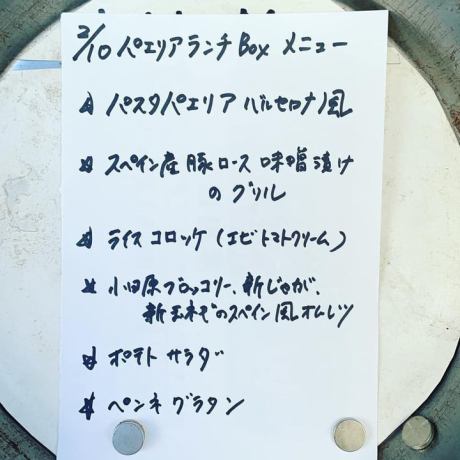 2/10 パエリアランチBox メニュー
☆ パスタパエリア バルセロナ風
☆ スペイン産 豚ロース 味噌漬け
のグリル
☆ ライスコロッケ (エビトマトクリーム)
☆ 小田原ブロッコリー、新じゃが、
新玉ねぎのスペイン風オムレツ
☆ ポテトサラダ
☆ ペンネグラタン